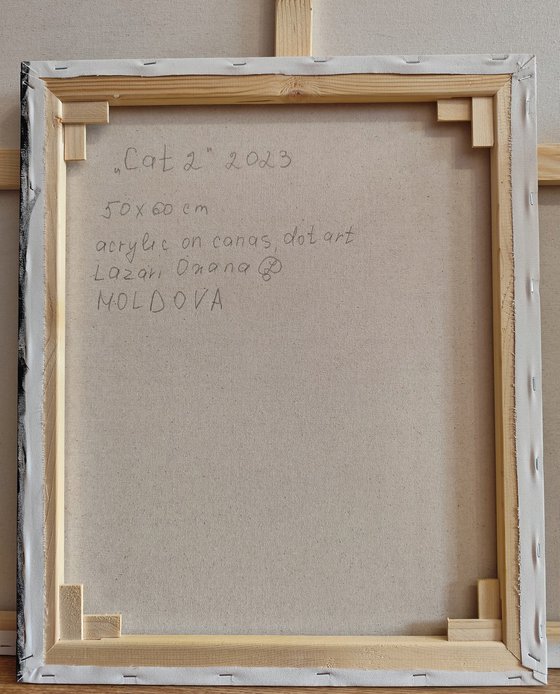 „Cat 2" 2023
50x60 cm
acrylic on canas, dot art
Lazari Oxana
MOLDOVA